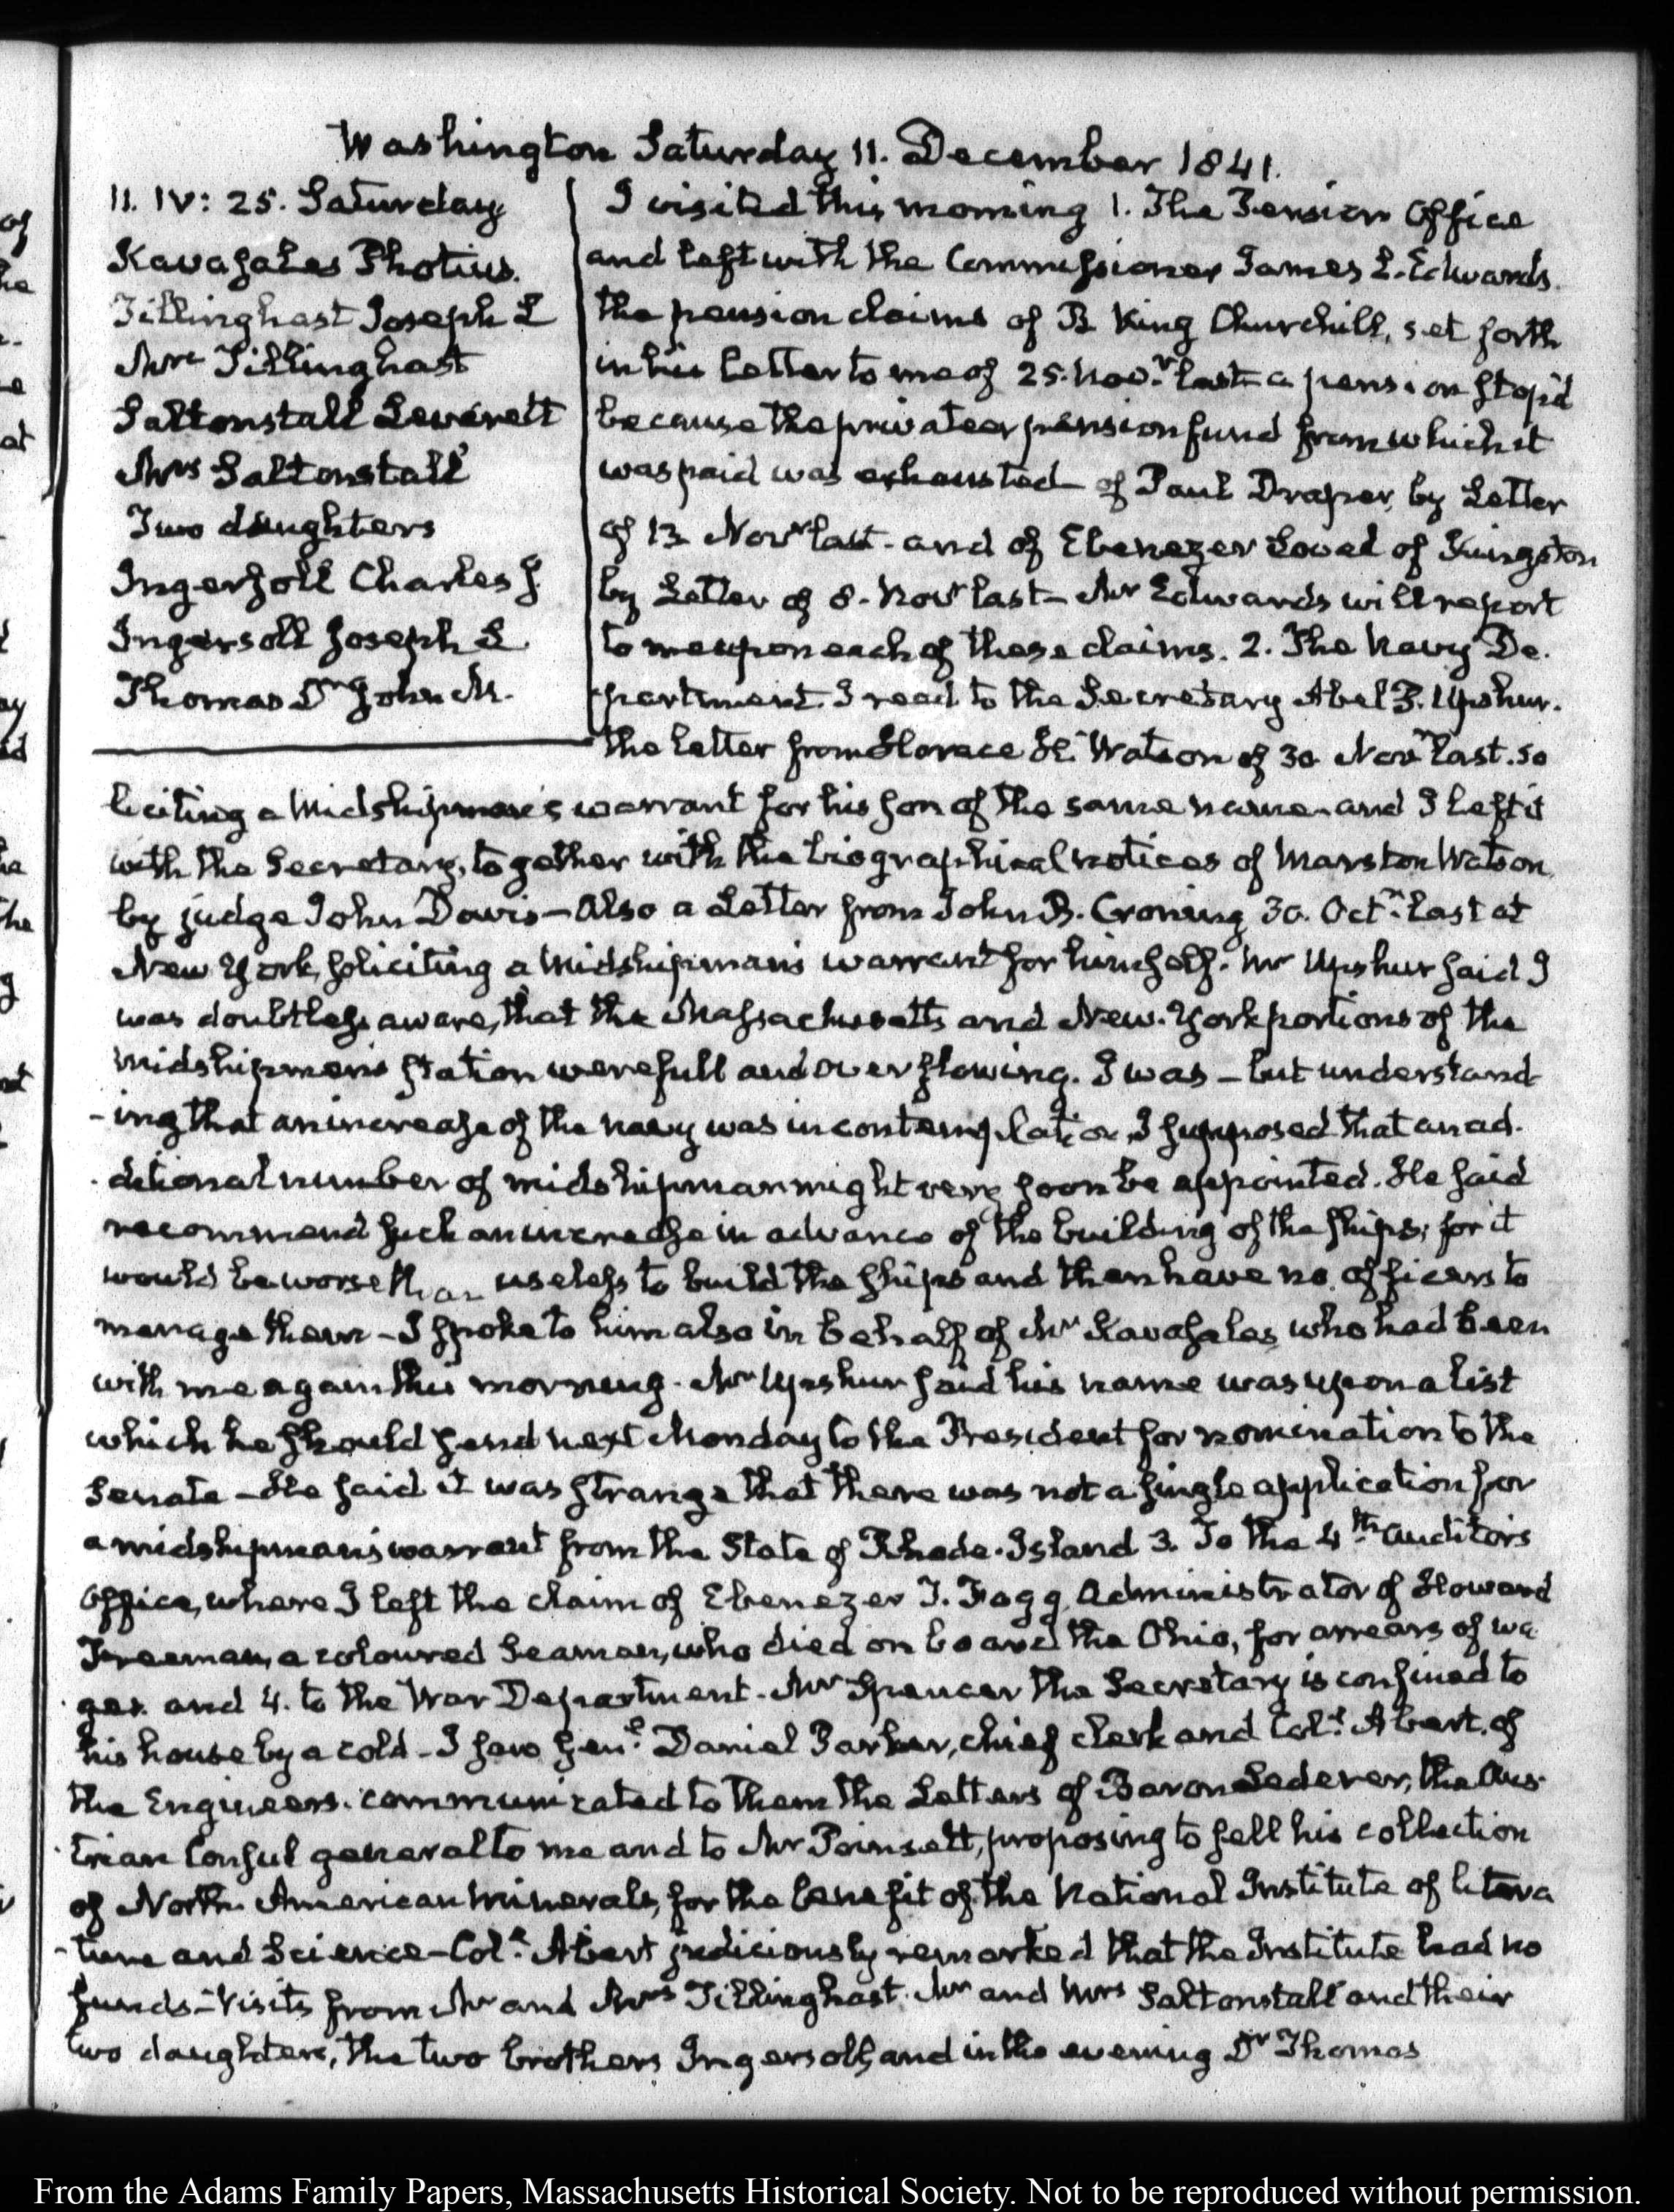 Washington Saturday 11. December 1841.
11. IV: 25. Saturday
Kavasales Photius.
Tillinghast Joseph L
Mrs Tillinghast
Saltonstall Leverett
Mrs Saltonstall
Two daughters
Ingersoll Charles J.
Ingersoll Joseph R
Thomas Dr John M.
I visited this morning 1. The Pension Office
and left with the Commissioner James L. Edwards.
the pension claims of B King Churchill, set forth
in his letter to me of 25. Novr. last a pension stop'd
because the privateer pension fund from which it
was paid was exhausted— of Paul Draper, by Letter
of 13 Novr last. and of Ebenezer Lovel of Kingston
by Letter of 8. Novr last— Mr Edwards will report
to me upon each of these claims. 2. The Navy De.
partment. I read to the Secretary Abel P. Upshur.
the letter from Horace H. Watson of 30 Novr last. so
liciting a Midshipman's warrant for his son of the same name. and I left it
with the Secretary, together with the biographical notices of Marston Watson
by judge John Davis— Also a Letter from John B. 30. Octr. last at
New York, soliciting a Midshipman's warrant for himself. Mr Upshur said I
was doubtless aware, that the Massachusetts and New-York portions of the
midshipmen's station were full and overflowing. I was— but understand
-ing that an increase of the navy was in contemplation, I supposed that an ad.
ditional number of midshipman might very soon be appointed. He said
recommend such an increase in advance of the building of the ships; for it
would be worse than useless to build the ships and then have no officers to
manage them— I spoke to him also in behalf of Mr Kavasales, who had been
with me again this morning. Mr Upshur said his name was upon a list
which he should send next Monday to the President for nomination to the
Senate— He said it was strange that there was not a single application for
a midshipman's warrant from the State of Rhode-Island 3. To the 4th. Auditor's
Office, where I left the claim of Ebenezer T. Fogg, Administrator of Howard
Freeman, a coloured Seaman, who died on board the Ohio, for arrears of wa
ges. and 4. to the War Department. Mr Spencer the Secretary is confined to
his house by a cold— I saw Genl. Daniel Parker, chief clerk and Coll. Abert, of
the Engineers. communicated to them the Letters of Baron Lederer, the Aus
trian Consul general to me and to Mr Poinsett, proposing to sell his collection
of North American minerals, for the benefit of the National Institute of litera
-ture and Science— Coll. Abert judiciously remarked that the Institute had no
funds— Visits from Mr and Mrs Tillinghast. Mr and Mrs Saltonstall and their
two daughters, the two brothers Ingersoll, and in the evening Dr Thomas
From the Adams Family Papers, Massachusetts Historical Society. Not to be reproduced without permission.